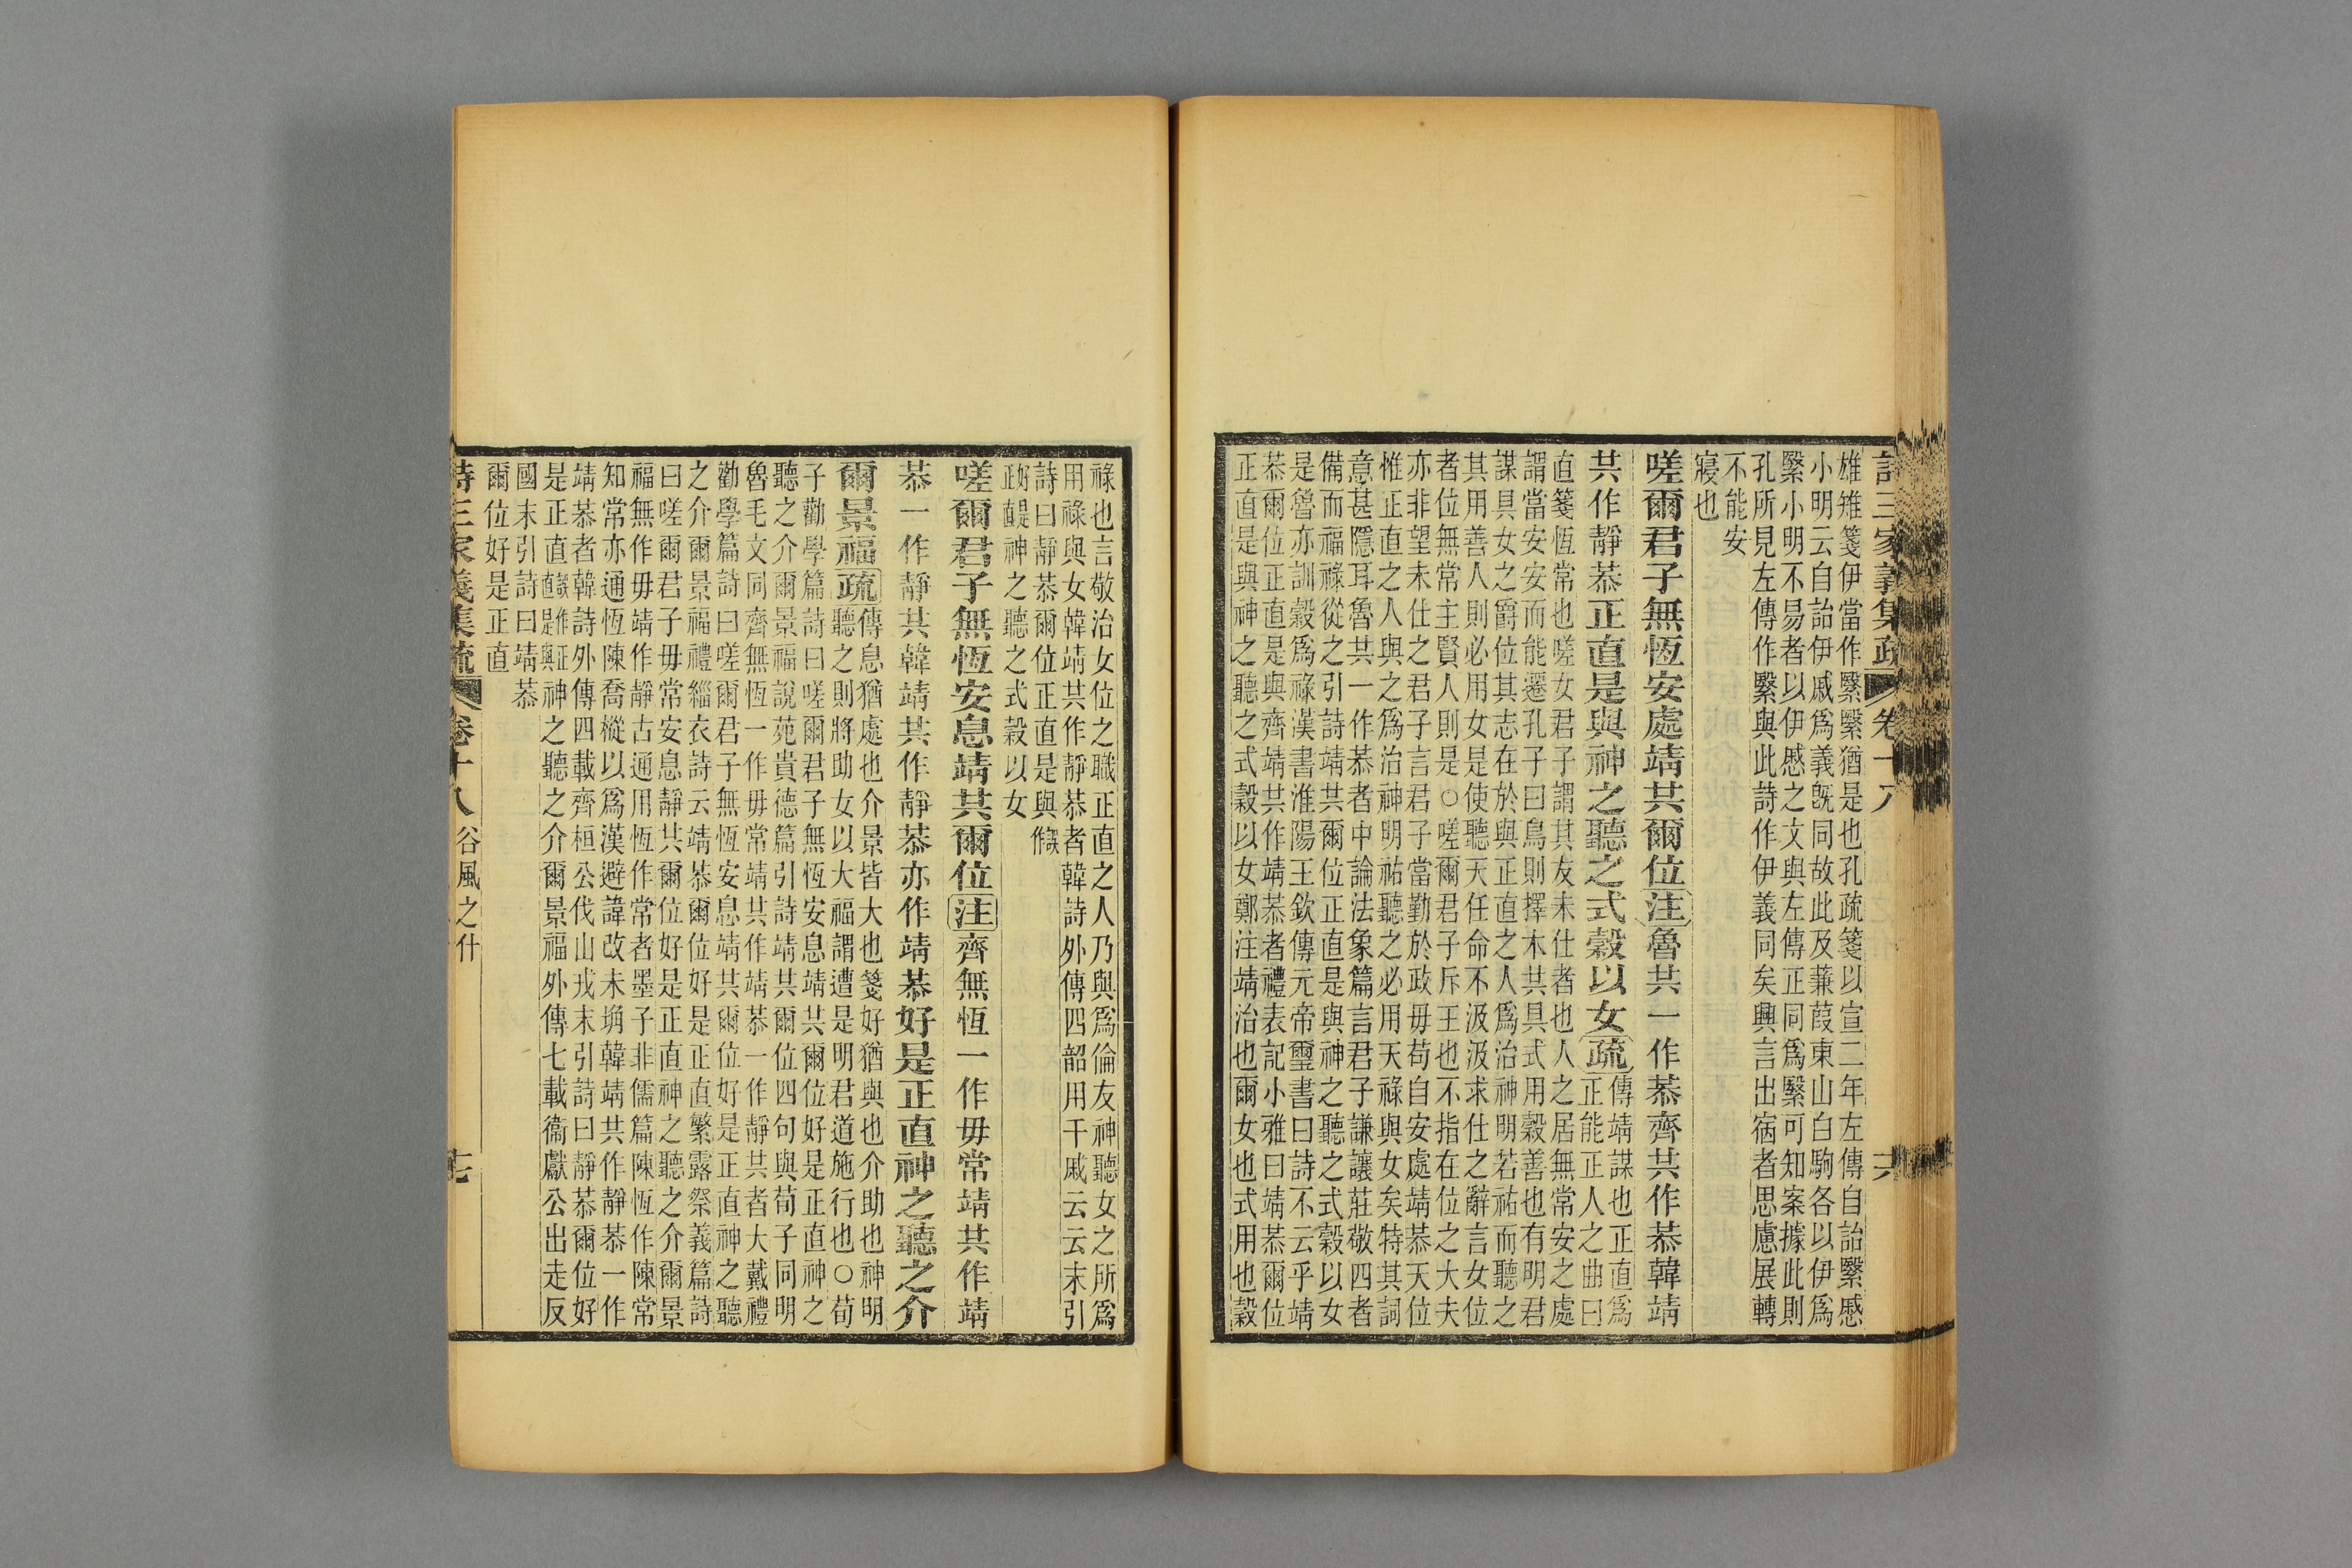 詩三家義集疏 卷十八 六
雄雉箋伊當作繄繄猶是也孔疏箋以宣二年左傳自詒繄慼
小明云自詒伊戚爲義旣同故此及蒹葭東山白駒各以伊爲
繄小明不易者以伊慼之文與左傳正同爲繄可知案據此則
孔所見左傳作繄與此詩作伊義同矣興言出宿者思慮展轉
不能安
寢也
嗟爾君子無恆安處靖共爾位注魯共一作恭齊共作恭韓靖
共作靜恭正直是與神之聽之式穀以女疏
傳靖謀也正直爲
正能正人之曲曰
直箋恆常也嗟女君子謂其友未仕者也人之居無常安之處
謂當安安而能遷孔子曰鳥則擇木共具式用穀善也有明君
謀具女之爵位其志在於與正直之人爲治神明若祐而聽之
其用善人則必用女是使聽天任命不汲汲求仕之辭言女位
者位無常主賢人則是○嗟爾君子斥王也不指在位之大夫
亦非望未仕之君子言君子當勤於政毋苟自安處靖恭天位
惟正直之人與之爲治神明祐聽之必用天祿與女矣特其詞
意甚隱耳魯共一作恭者中論法象篇言君子謙讓莊敬四者
備而福祿從之引詩靖共爾位正直是與神之聽之式穀以女
是魯亦訓穀爲祿漢書淮陽王欽傳元帝璽書曰詩不云乎靖
恭爾位正直是與齊靖共作靖恭者禮表記小雅曰靖恭爾位
正直是與神之聽之式穀以女鄭注靖治也爾女也式用也穀
祿也言敬治女位之職正直之人乃與爲倫友神聽女之所爲
用祿與女韓靖共作靜恭者韓詩外傳四韶用干戚云云末引
詩曰靜恭爾位正直是與
神之聽之式穀以女
嗟爾君子無恆安息靖共爾位注齊無恆一作毋常靖共作靖
恭一作靜共韓靖共作靜恭亦作靖恭好是正直神之聽之介
爾景福疏
傳息猶處也介景皆大也箋好猶與也介助也神明
聽之則將助女以大福謂遭是明君道施行也○荀
子勸學篇詩曰嗟爾君子無恆安息靖共爾位好是正直神之
聽之介爾景福說苑貴德篇引詩靖共爾位四句與荀子同明
魯毛文同齊無恆一作毋常靖共作靖恭一作靜共者大戴禮
勸學篇詩曰嗟爾君子無恆安息靖共爾位好是正直神之聽
之介爾景福禮緇衣詩云靖恭爾位好是正直繁露祭義篇詩
曰嗟爾君子毋常安息靜共爾位好是正直神之聽之介爾景
福無作毋靖作靜古通用恆作常者墨子非儒篇陳恆作陳常
知常亦通恆陳喬樅以爲漢避諱改未塙韓靖共作靜恭一作
靖恭者韓詩外傳四載齊桓公伐山戎末引詩曰靜恭爾位好
是正直神之聽之介爾景福外傳七載衞獻公出走反
國末引詩曰靖恭
爾位好是正直
詩三家義集疏 卷十八 谷風之什 七